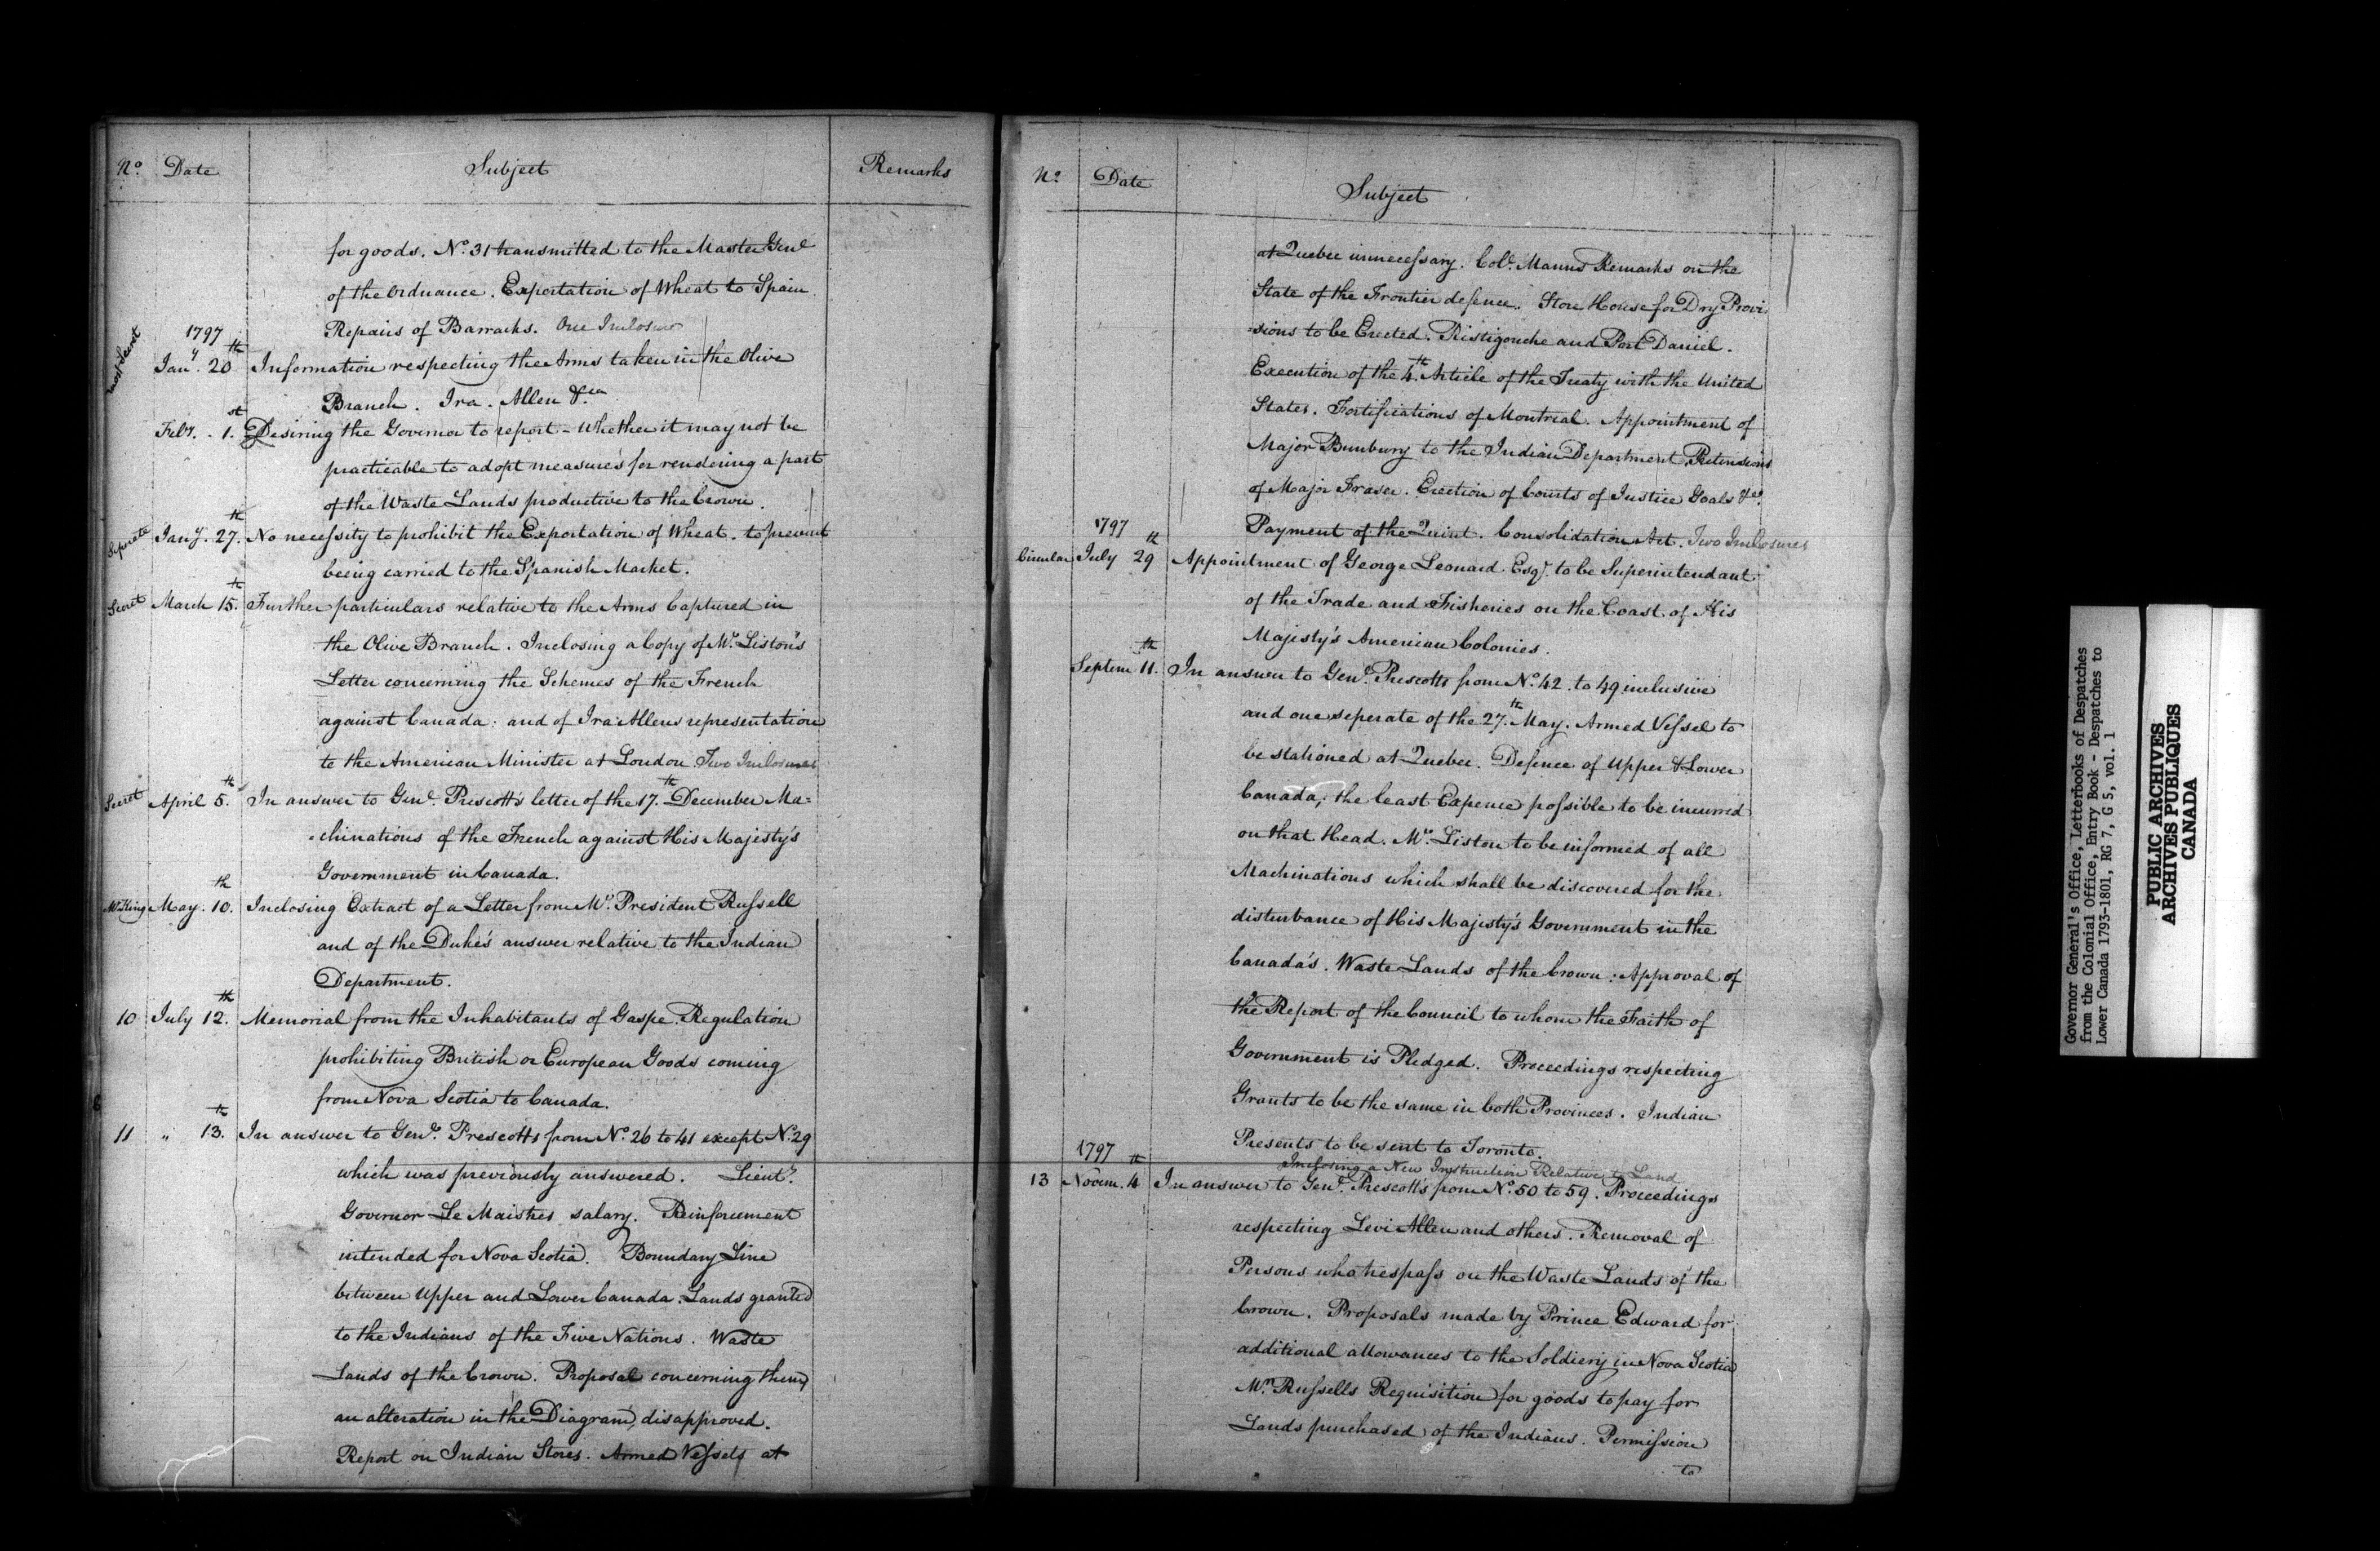 No. Date Subject Remarks
for goods. No. 31 transmitted to the Master Genl
of the Ordnance. Exportation of Wheat to Spain
Repairs of Barracks. One Inclosure
1797
most Secret Jany. 20th Information respecting the Arms taken in the Olive
Branch. Ira. Allen &ca
Feby. 1st. Desiring the Governor to report - whether it may not be
practicable to adopt measures for rendering a part
of the Waste Lands productive to the Crown.
Seperate Jany. 27th. No necessity to prohibit the Exportation of Wheat. to prevent
being carried to the Spanish Market.
Secret March 15th. Further particulars relative to the Arms Captured in
the Olive Branch. Inclosing a Copy of Mr. Liston's
Letter concerning the Schemes of the French
against Canada: and of Ira Allens representation
to the American Minister at London Two Inclosures
Secret April 5th. In answer to Genl. Prescott's letter of the 17th. December Ma=
=chinations of the French against His Majesty's
Government in Canada.
Mr. King May. 10th. Inclosing Extract of a Letter from Mr. President Russell
and of the Duke's answer relative to the Indian
Department.
10 July 12th. Memorial from the Inhabitants of Gaspe. Regulation
prohibiting British or European Goods coming
from Nova Scotia to Canada.
11 " 13th. In answer to Genl. Prescotts from No. 26 to 41 except No. 29
which was previously answered. Lieut.
Governor Le Maistres salary. Reinforcement
intended for Nova Scotia. Boundary Line
between Upper and Lower Canada. Lands granted
to the Indians of the Five Nations. Waste
Lands of the Crown. Proposal concerning them,
an alteration in the Diagram, disapproved.
Report on Indian Stores. Armed Vessels at
No. Date Subject
at Quebec unnecessary. Coll. Manns Remarks on the
State of the Frontier defence. Store House for Dry Provi
=sions to be Erected. Ristigouche and Port Daniel.
Execution of the 4th. Article of the Treaty with the United
States. Fortifications of Montreal. Appointment of
Major Bunbury to the Indian Department, Pretensions
of Major Fraser. Erection of Courts of Justice Goals &ca.
1797 Payment of the Quint. Consolidation Act. Two Inclosures
Circular July 29th Appointment of George Leonard. Esqr. to be Superintendant
of the Trade and Fisheries on the Coast of His
Majesty's American Colonies.
Septem 11th. In answer to Genl. Prescotts from No. 42. to 49 inclusive
and one seperate of the 27th. May. Armed Vessel to
be stationed at Quebec. Defence of Upper & Lower
Canada; the least Expence possible to be incurred
on that Head. Mr. Liston to be informed of all
Machinations which shall be discovered for the
disturbance of His Majesty's Government in the
Canada's. Waste Lands of the Crown: Approval of
the Report of the Council to whom the Faith of
Government is Pledged. Proceedings respecting
Grants to be the same in both Provinces. Indian
Presents to be sent to Toronto.
1797 Inclosing a New Instruction Relative to Land
13 Novem. 4th In answer to Genl. Prescott's from No. 50 to 59. Proceedings
respecting Levi Allen and others. Removal of
Persons who trespass on the Waste Lands of the
Crown. Proposals made by Prince Edward for
additional allowances to the Soldiery in Nova Scotia
Mr. Russells Requisition for goods to pay for
Lands purchased of the Indians. Permission
to
Governor General's Office, Letterbooks of Despatches
from the Colonial Office, Entry Book - Despatches to
Lower Canada 1793-1801, RG 7, G 5, vol. 1
PUBLIC ARCHIVES
ARCHIVES PUBLIQUES
CANADA